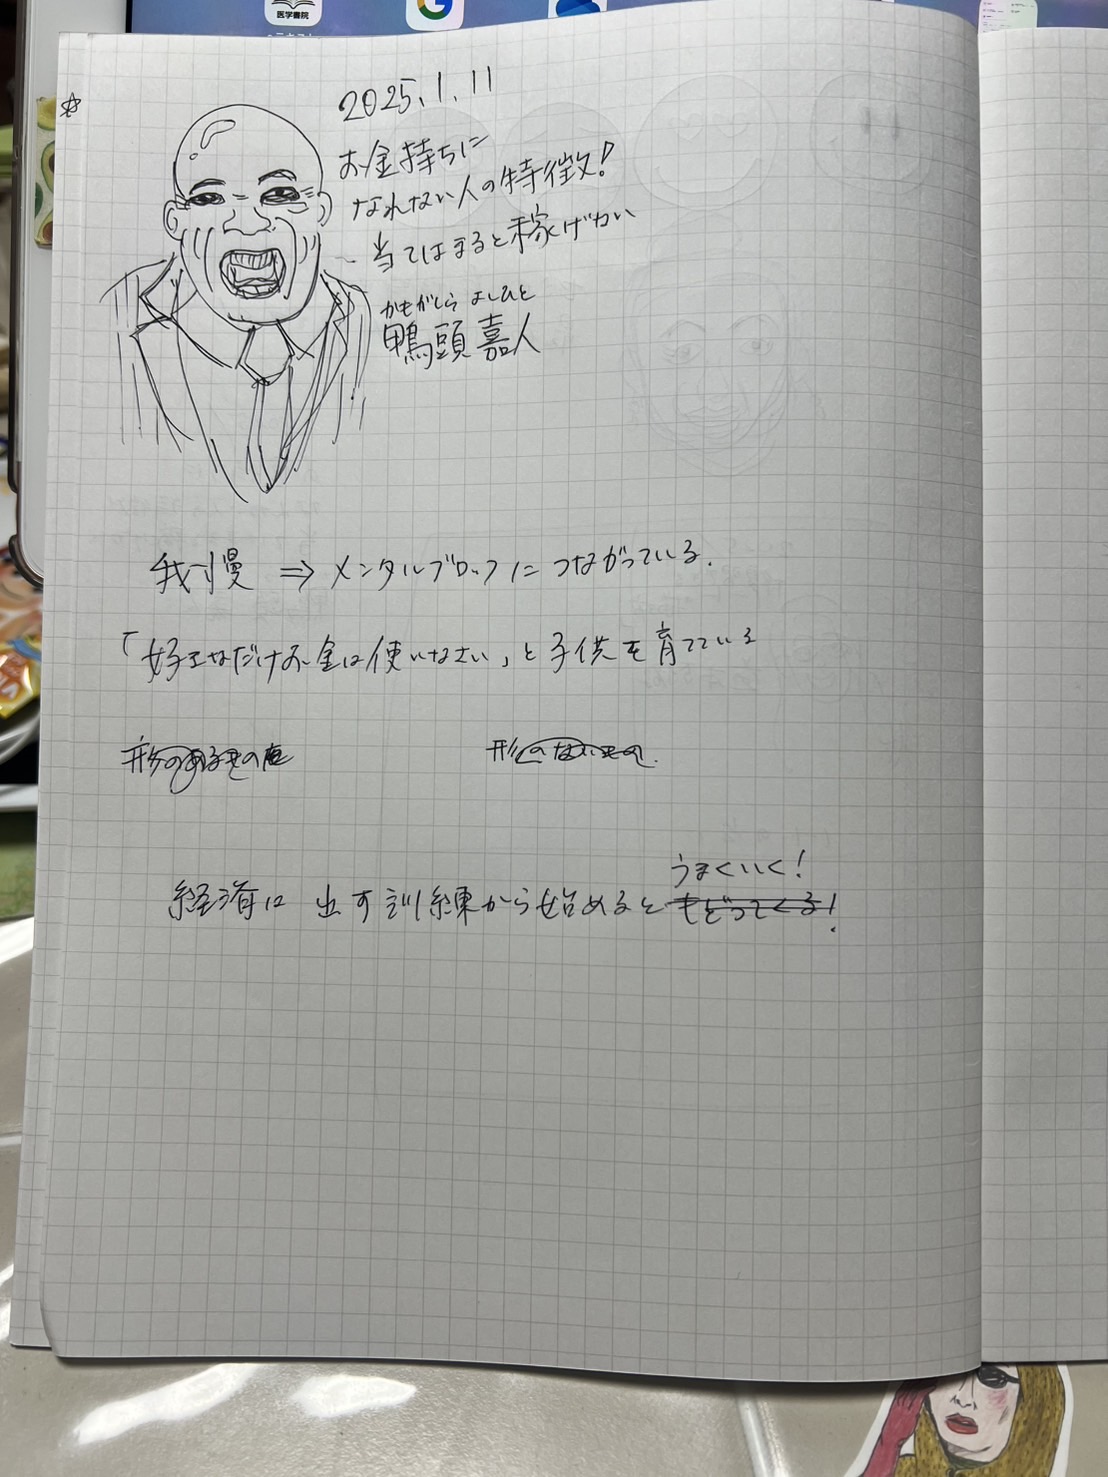 医学書院
2025.1.11
お金持ちに
なれない人の特徴!
当てはまると稼げない
かもがしら よしひと
鴨頭嘉人
我慢 ⇒ メンタルブロックにつながっている.
「好きなだけお金は使いなさい」と子供を育てている
形のあるもの 形のないもの
うまくいく!
経済は 出す訓練から始めると もどってくる!